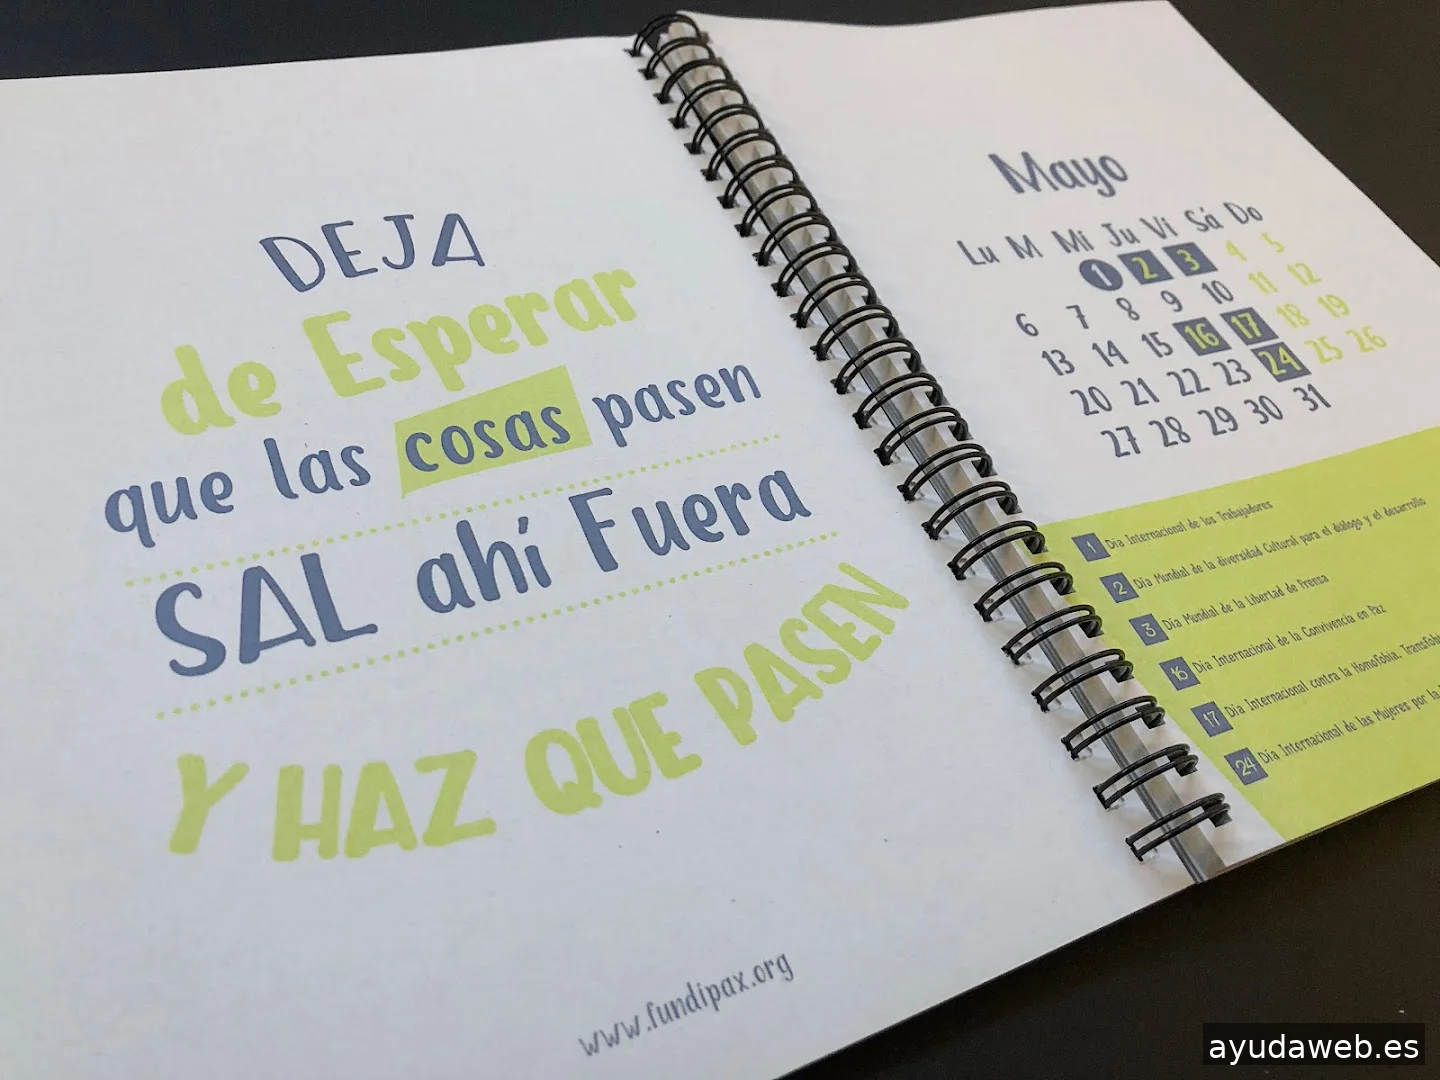 DEJA
de Esperar
que las cosas pasen
SAL ahí Fuera
Y HAZ QUE PASEN
www.fundipax.org
Mayo
Lu M Mi Ju Vi Sá Do
1 2 3 4 5
6 7 8 9 10 11 12
13 14 15 16 17 18 19
20 21 22 23 24 25 26
27 28 29 30 31
1 Día Internacional de los Trabajadores
2 Día Mundial de la diversidad Cultural para el diálogo y el desarrollo
3 Día Mundial de la Libertad de Prensa
16 Día Internacional de la Convivencia en Paz
17 Día Internacional contra la Homofobia, Transfobi
24 Día Internacional de las Mujeres por la
ayudaweb.es